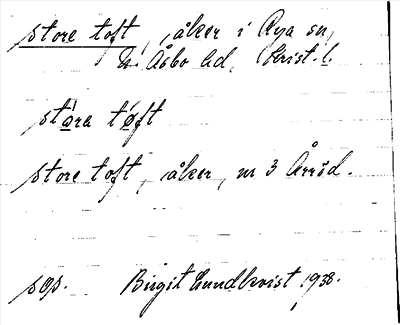 store toft, åker i Rya sn,
N. Åsbo hd, Krist. l.
stø̀ra tøft
store toft, åker, nr 3 Årröd.
sop. Birgit Lundkvist 1938.